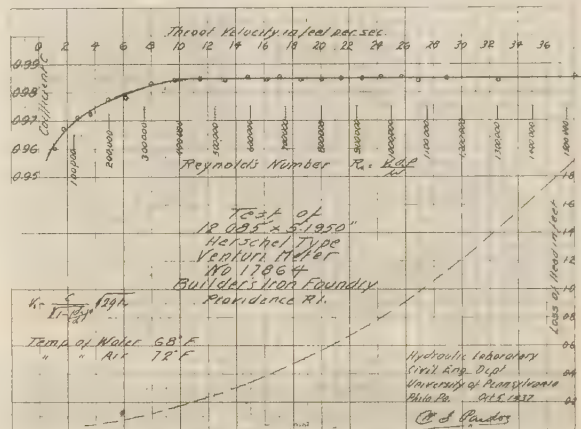 Throat Velocity in feet per sec.
0 2 4 6 8 10 12 14 16 18 20 22 24 26 28 30 32 34 36
0.99
0.98
0.97
0.96
0.95
Coefficient
100,000 200,000 300,000 400,000 500,000 600,000 700,000 800,000 900,000 1,000,000 1,100,000 1,200,000 1,300,000
Reynolds Number
Test of
12.085 x 5.1950"
Herschel Type
Venturi Meter
No 17864
Builders Iron Foundry
Providence R.I.
Temp of Water 68°F
" " Air 72°F
1.8
1.6
1.4
1.2
1.0
0.8
0.6
0.4
0.2
Loss of Head in feet
Hydraulic Laboratory
Civil Eng. Dept
University of Pennsylvania
Phila Pa. Oct 5, 1937